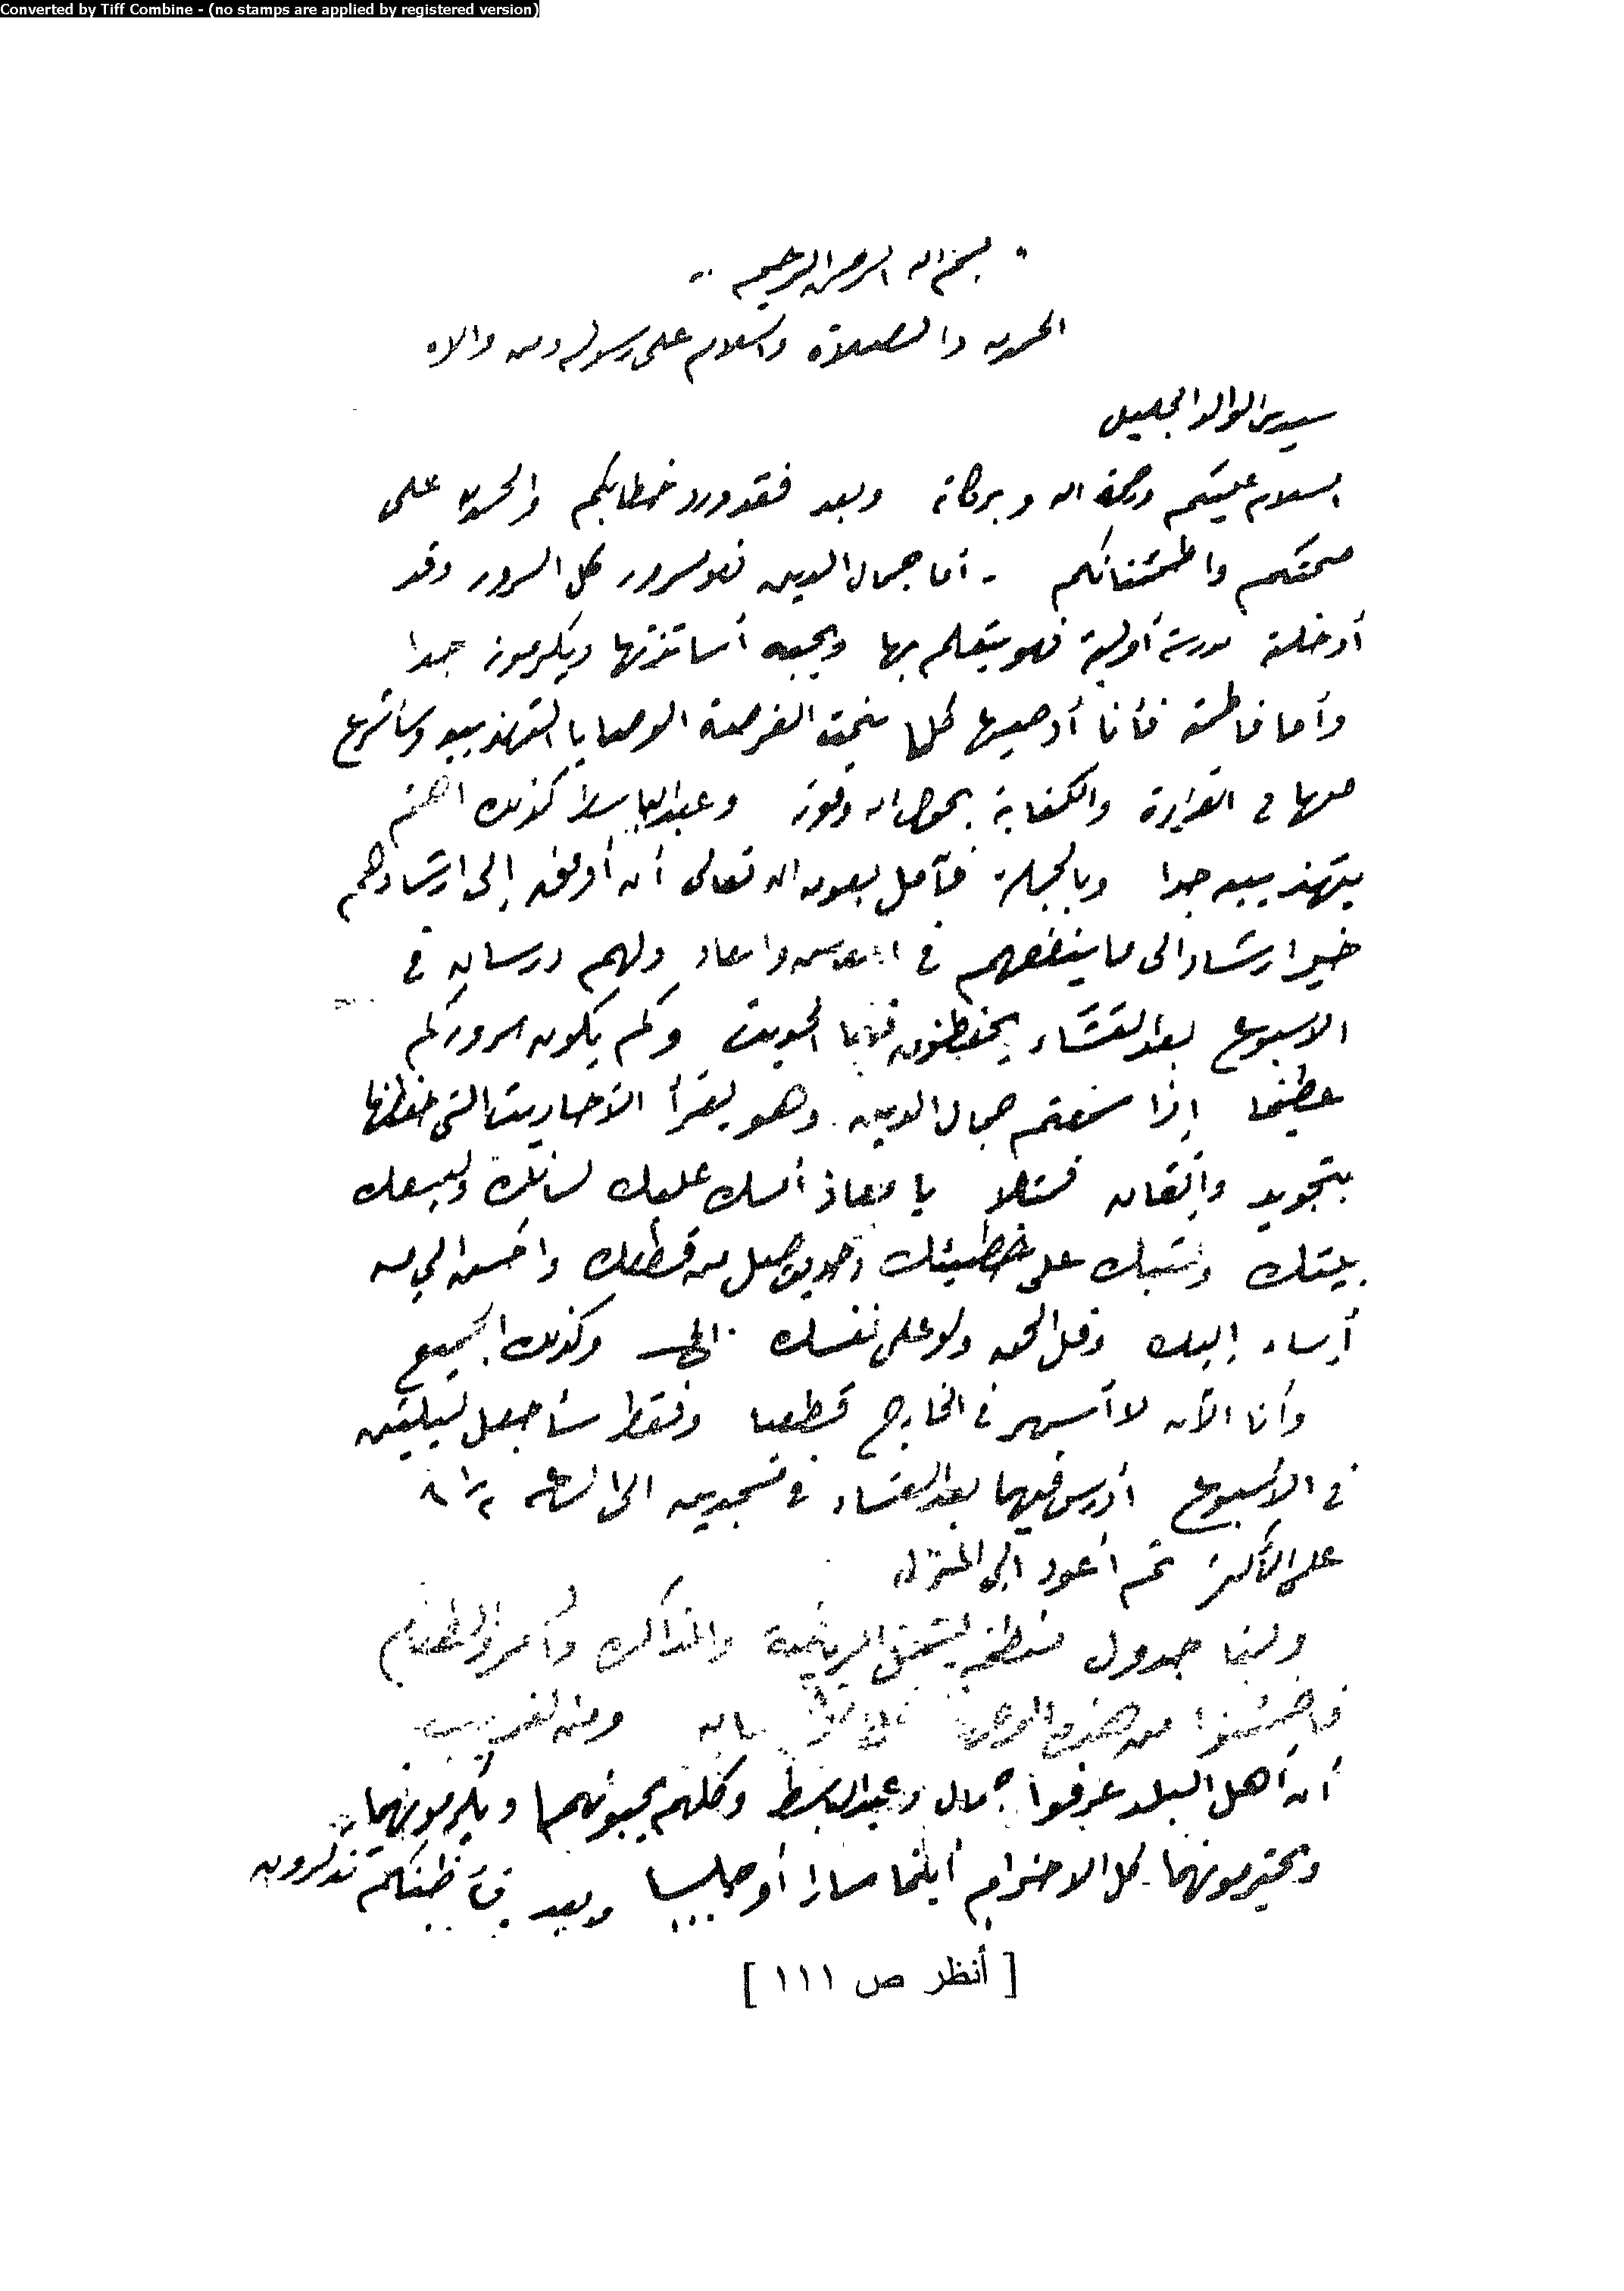 Converted by Tiff Combine - (no stamps are applied by registered version)
بسم الله الرحمن الرحيم
الحمد لله والصلاة والسلام على رسوله ومن والاه
سيدى الوالد الجليل
السلام عليكم ورحمة الله وبركاته وبعد فقد ورد خطابكم والحمد لله على
صحتكم واطمئنانكم - أما جمال الدين فهو مسرور كل السرور وقد
أدخلته مدرسة أولية فهو يتعلم بها ويحبه أساتذتها ويكرمونه جدا
وأما فاطمة فأنا أوصيها كلما سنحت الفرصة الوصايا التهذيبية وسأشرع
معها فى القراءة والكتابة بحول الله وقوته وعبد الباسط كذلك اهتم
بتهذيبه جدا وبالجملة فآمل بعون الله تعالى أن أوفق إلى ارشادهم
خير ارشاد الى ما ينفعهم فى المعاش والمعاد ولهم درسان فى
الاسبوع بعد العشاء يحفظون فيهما الحديث وكم يكون سروركم
عظيما إذا سمعتم جمال الدين وهو يقرأ الأحاديث التى حفظها
بتجويد وإتقان فمثلا يا معاذ أمسك عليك لسانك وليسعك
بيتك ولتبك على خطيئتك وحديث صل من قطعك وأحسن الى من
أساء إليك وقل الحق ولو على نفسك الخ وكذلك الجميع
وأنا الآن لا أسهر فى الخارج قطعيا وفقط سأجعل ليلتين
فى الاسبوع أدرس فيهما بعد العشاء فى مسجدين الى الساعة ٨ ١/٢
على الأكثر ثم أعود الى المنزل
ولنا جدول منظم يشمل الرياضة والمذاكرة والطعام
فاطمئنوا من هذه ومن الغريب
أن أهل البلد عرفوا جمال وعبد الباسط وكلهم يحبونهما ويكرمونهما
ويحترمونهما كل الاحترام أينما سارا أو جلسا وبعد فأظنكم تذكرون
[ أنظر ص ١١١ ]